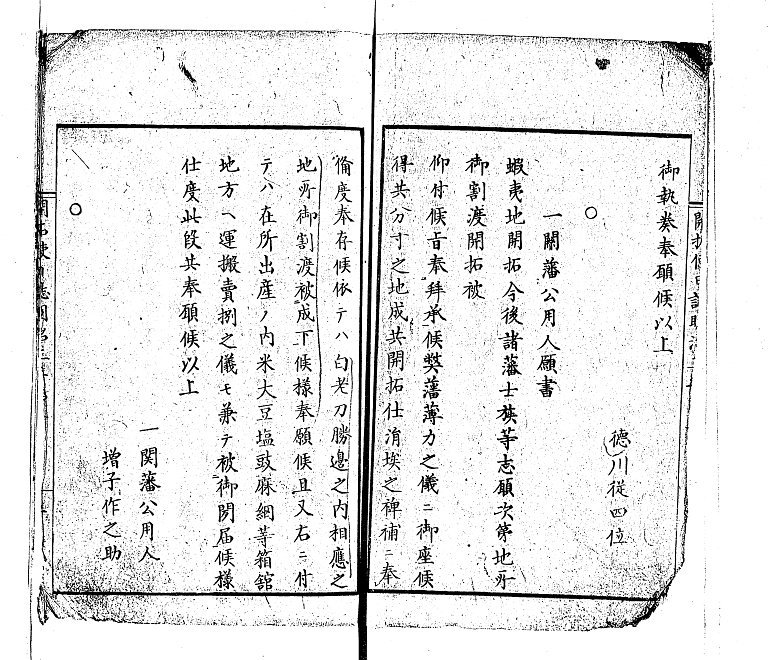 御執奏奉願候以上
徳川従四位
○
一関藩公用人願書
蝦夷地開拓今後諸藩士族等志願次第地所
御割渡開拓被
仰付候旨奉拜承候弊藩薄力之儀ニ御座候
得共分寸之地成共開拓仕涓埃之裨補ニ奉
備度奉存候依テハ白老刀勝邊之内相應之
地所御割渡被成下候様奉願候且又右ニ付
テハ在所出産ノ内米大豆塩豉麻綱等箱舘
地方ヘ運搬賣捌之儀モ兼テ被御聞届候様
仕度此段共奉願候以上
一関藩公用人
増子作之助
○